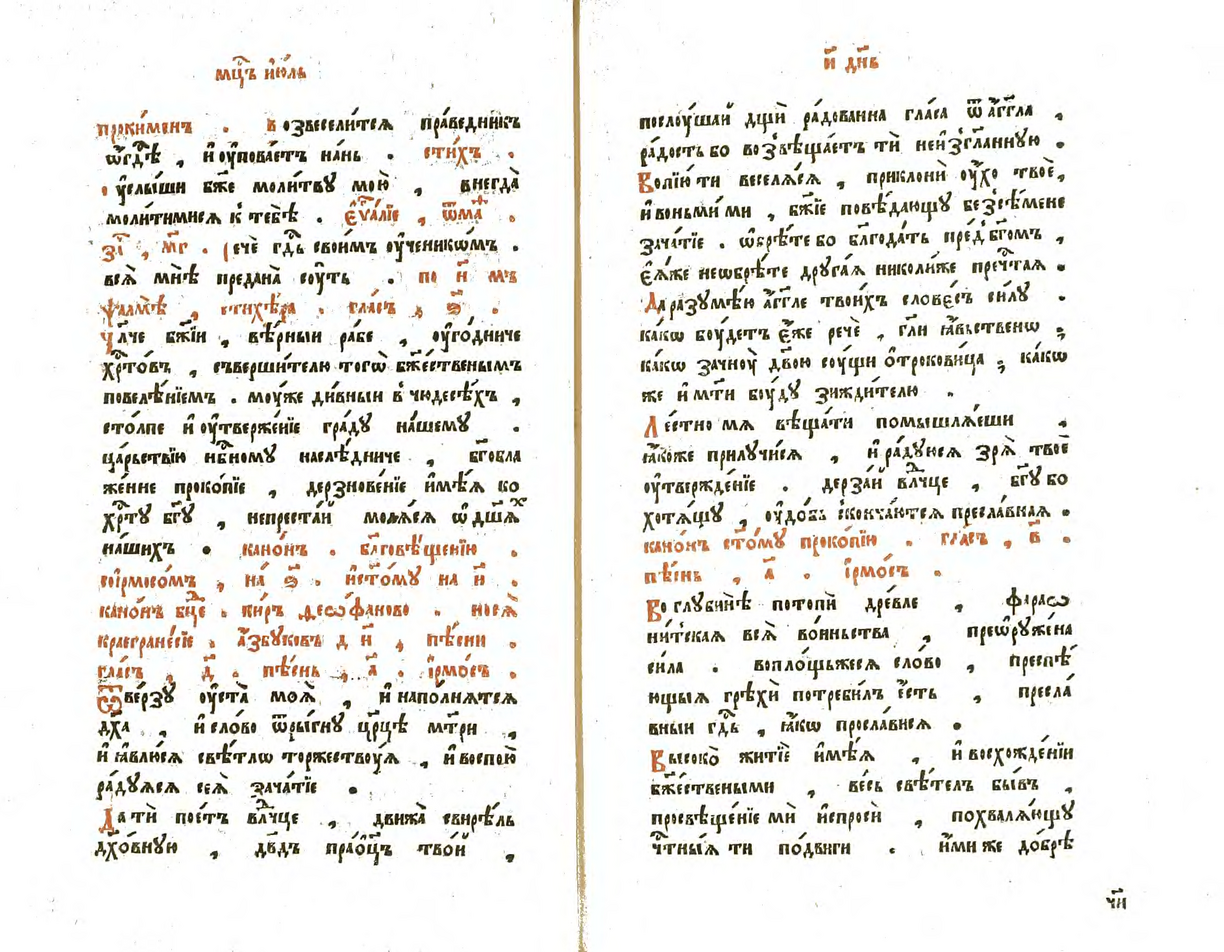 мц҃ъ ию́ль
проки́менъ . возвесели́тсѧ пра́ведникъ
ѡ҆гд҃ѣ , и҆ оу҆пова́етъ на́нь . сти́хъ .
оу҆слы́ши бж҃е моли́тву мою̀ , внегда̀
моли́тимисѧ к тебѣ̀ . є҆ѵⷢ҇а́лїе , ѿ маⷴ .
з҃і , мг҃ . речѐ гдⷭ҇ь свои́мъ оу҆ченикѡ́мъ .
всѧ̀ мнѣ̀ предана̀ соу́ть . по н҃ мъ
ѱалмѣ̀ , стихе́ра . гла́съ , ѕ҃ .
Ча́лче бж҃їи , вѣ́рныи ра́бе , оу҆го́дниче
хрⷭ҇то́въ , съверши́телю того̀ бж҃е́ственымъ
повелѣ́нїемъ . моу́же ди́вныи в чюдесѣ́хъ ,
сто́лпе и҆ оу҆твержє́нїе гра́ду на́шему .
ца́рьствїю нбⷭ҇ному наслѣ́дниче , бг҃обла
же́нне проко́пїе , дерзнове́нїе и҆мѣ́ѧ ко
хрⷭ҇ту́ бг҃у , непреста́и молѧ́сѧ ѡ҆ дш҃аⷯ
на́шихъ . кано́нъ . бл҃говѣ́щенїю .
соі҆рмосо́мъ , на́ ѕ҃ . и҆ ст҃о́му на и҃ .
кано́нъ бц҃е . ки́ръ ѳеѡфа́ново . носѧ̀
краегране́сїе . а҆́збуковъ д н҃ , пѣ́сни .
гла́съ , д҃ . пѣ́снь , а҃ . і҆рмо́съ .
Ѿве́рзу оу҆ста̀ моѧ̀ , и҆ напо́лнѧтсѧ
дх҃а , и҆ сло́во ѿры́гну цр҃и́цѣ мт҃ри ,
и҆ ꙗ҆влю́сѧ свѣ́тлѡ торжествоу́ѧ , и҆ воспою̀
ра́дуѧсѧ сеѧ̀ зача́тїе .
Да тѝ пое́тъ влⷣчце , движа̀ свирѣ́ль
дх҃о́вную , дв҃дъ пра́ѻц҃ъ тво́и ,
и҃ дн҃ь
послоу́шаи дщѝ ра́дованна гла́са ѿ а҆́гг҃ла ,
ра́дость бо возвѣща́етъ тѝ неи҆зг҃ла́нную .
Вопїю́ ти веселѧ́сѧ , приклонѝ оу҆́хо твоѐ ,
и҆ воньми́ ми , бж҃їе повѣ́дающу безсѣ́мене
зача́тїе . ѡ҆брѣ́те бо бл҃года́ть пред̾ бг҃омъ ,
є҆ѧ́же неѡбрѣ́те друга́ѧ николи́же преч҇тⷭаѧ .
Да разумѣ́ю а҆́гг҃ле твои́хъ слове́съ си́лу .
ка́кѡ боу́детъ є҆́же речѐ , гл҃и ꙗ҆́вьственѡ ;
ка́кѡ зачноу̀ дв҃ою соу́щи о҆трокови́ца ; ка́кѡ
же и҆ мт҃и боу́ду зижди́телю .
Ле́стно мѧ вѣща́ти помышлѧ́еши ,
ꙗ҆́коже прилучи́сѧ , и҆ ра́дуюсѧ зрѧ̀ твоѐ
оу҆твержде́нїе . дерза́и влⷣчце , бг҃у бо
хотѧ́щу , оу҆до́бь скончаю́тсѧ пресла́внаѧ .
кано́нъ ст҃о́му проко́пїю . гла́съ , в҃ .
пѣ́снь , а҃ . і҆рмо́съ .
Во глубинѣ̀ потопѝ дре́вле , фараѡ
ни́тскаѧ всѧ̀ во́иньства , преѡ҆руже́на
си́ла . воплоща́ьжесѧ сло́во , преспѣ́
ющыѧ грѣхѝ потреби́лъ є҆́сть , пресла́
вныи гдⷭ҇ь , ꙗ҆́кѡ просла́висѧ .
Высоко̀ житїѐ и҆мѣ́ѧ , и҆ восхожде́нїи
бж҃е́ствеными , весь свѣ́телъ бы́въ ,
просвѣще́нїе ми и҆спросѝ , похвалѧ́ющу
чтⷭ҇ны́ѧ ти по́двиги . и҆́ми же до́брѣ
чи҃